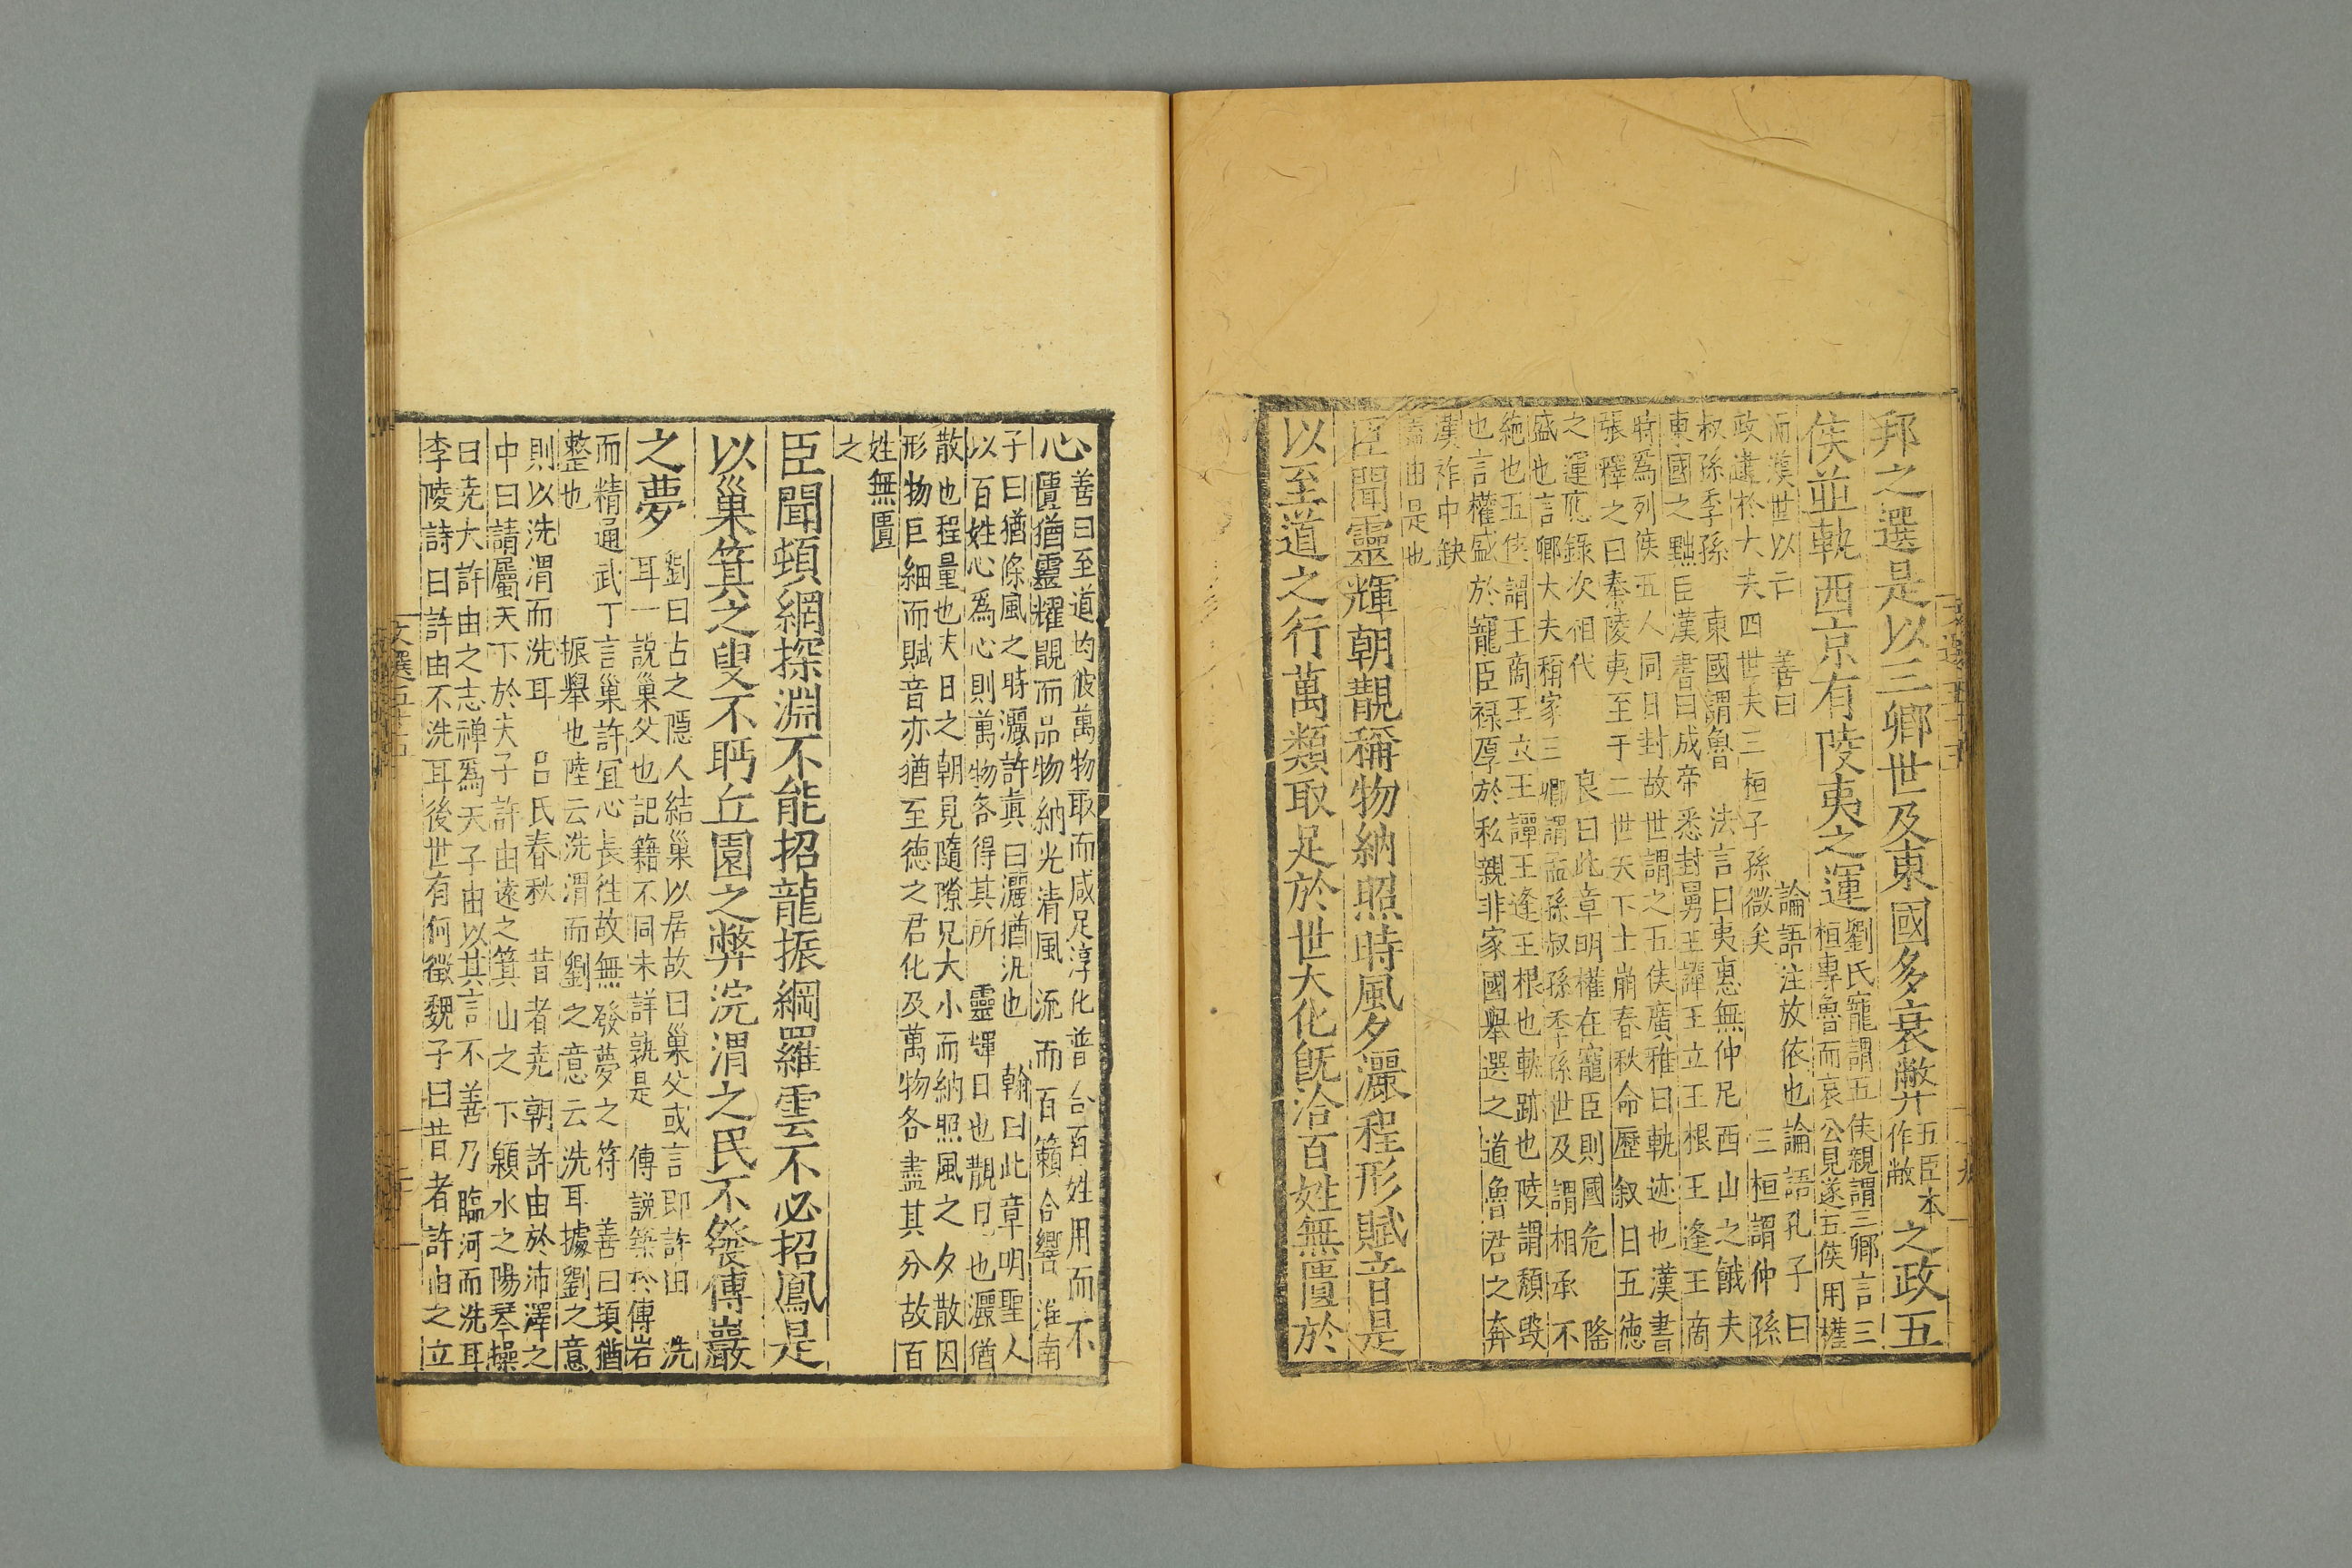 邦之選是以三卿世及東國多衰弊五臣本作敝之政五
侯並軌西京有陵夷之運劉氏寵謂五侯親謂三卿言三
桓專魯而哀公見遂五侯用權
而漢世以亡 善曰 論語注放依也論語孔子曰
政逮於大夫四世矣三桓子孫微矣 三桓謂仲孫
叔孫季孫 東國謂魯 法言曰夷惠無仲尼西山之餓夫
東國之黜臣漢書曰成帝悉封舅王譚王立王根王逢王商
時爲列侯五人同日封故世謂之五侯廣雅曰軌迹也漢書
張釋之曰秦陵夷至于二世天下土崩春秋命歷叙曰五德
之運應錄次相代 良曰此章明權在寵臣則國危 陸
盛也言卿大夫稱家三卿謂孟孫叔孫季孫世及謂相承不
絶也五侯謂王商王立王譚王逢王根也軌跡也陵謂頹毀
也言權盛於寵臣祿厚於私親非家國舉選之道魯君之奔
漢祚中缺
論由是也
臣聞靈輝朝覯稱物納照時風夕灑程形賦音是
以至道之行萬類取足於世大化旣洽百姓無匱於
心善曰至道均彼萬物取而咸足淳化普洽百姓用而不
匱猶靈耀覯而品物納光清風流而百籟合響 淮南
子曰猶條風之時灑許眞曰灑猶汎也 翰曰此章明聖人
以百姓心爲心則萬物各得其所 靈輝日也覯見也灑猶
散也程量也夫日之朝見隨隙兄大小而納照風之夕散因
形物巨細而賦音亦猶至德之君化及萬物各盡其分故百
姓無匱
之
臣聞頓網探淵不能招龍振綱羅雲不必招鳳是
以巢箕之叟不眄丘園之弊浣渭之民不發傅巖
之夢劉曰古之隱人結巢以居故曰巢父或言即許由 洗
耳一說巢父也記籍不同未詳孰是 傅說築於傅岩
而精通武丁言巢許冝心長徃故無發夢之符 善曰頓猶
整也 振舉也陸云洗渭而劉之意云洗耳據劉之意
則以洗渭而洗耳 呂氏春秋 昔者堯朝許由於沛澤之
中曰請屬天下於夫子許由遂之箕山之下穎水之陽琴操
曰堯大許由之志禪爲天子由以其言不善乃臨河而洗耳
李陵詩曰許由不洗耳後世有何徵魏子曰昔者許由之立
文選五十五